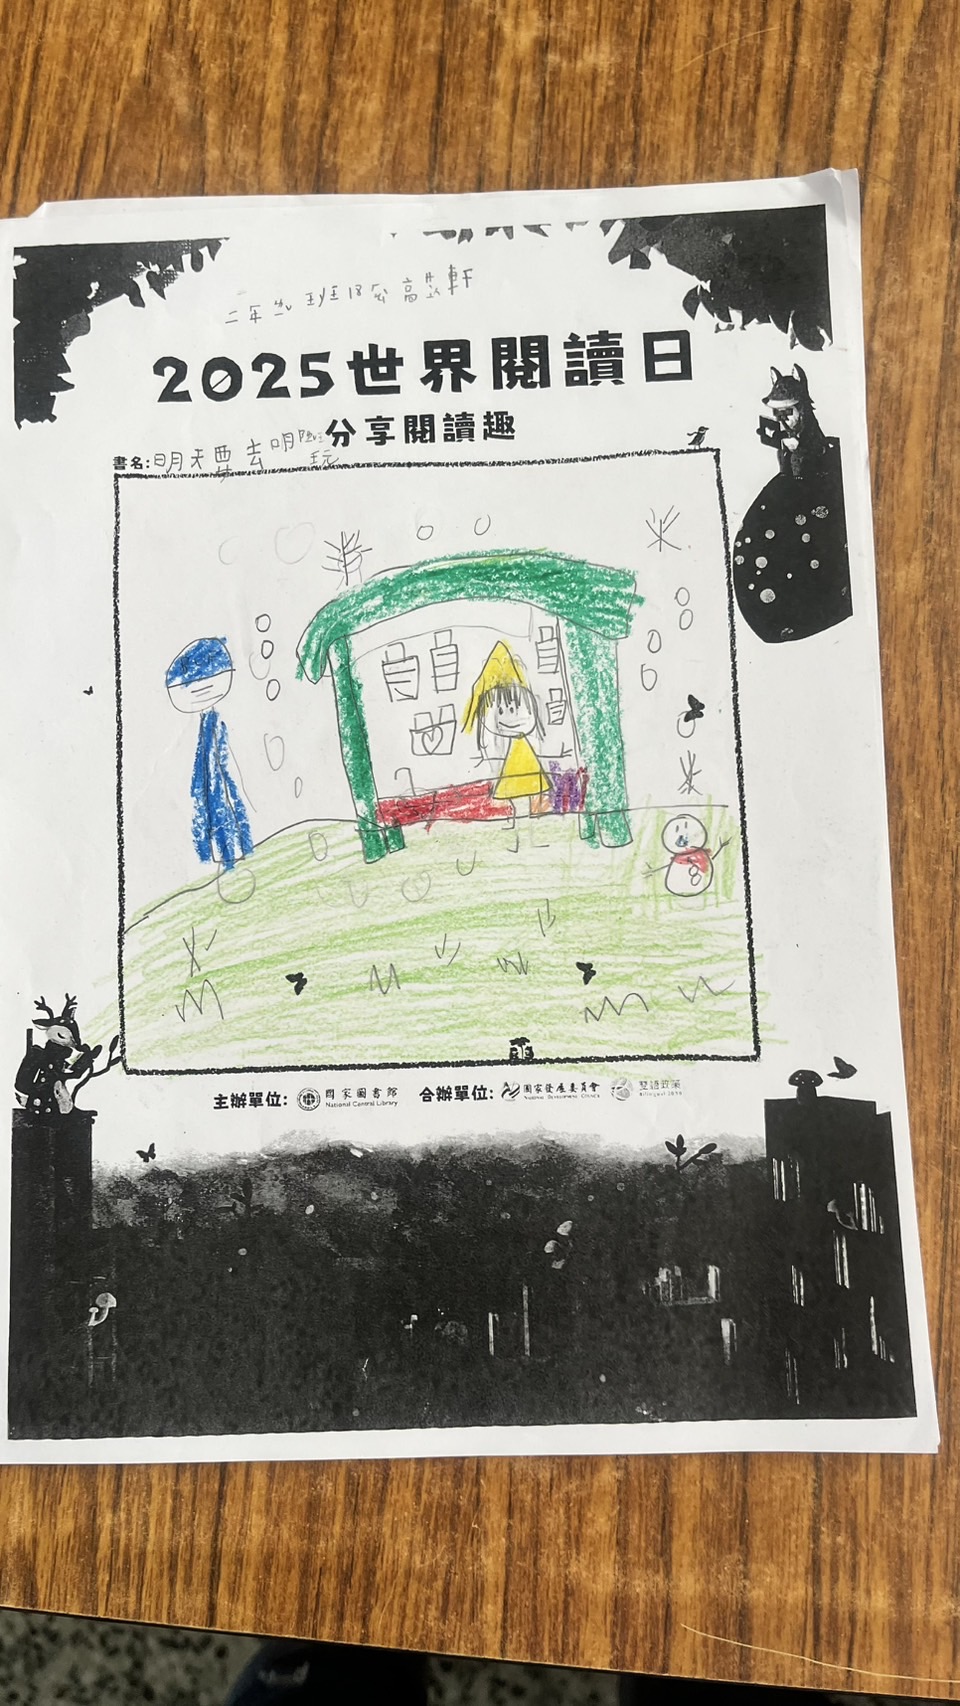 二年 班18号高 軒
2025世界閱讀日
分享閱讀趣
書名:明天要去哪 玩
主辦單位: 國家圖書館 合辦單位: 國家發展委員會 雙語政策
National Central Library National Development Council Bilingual 2030
8